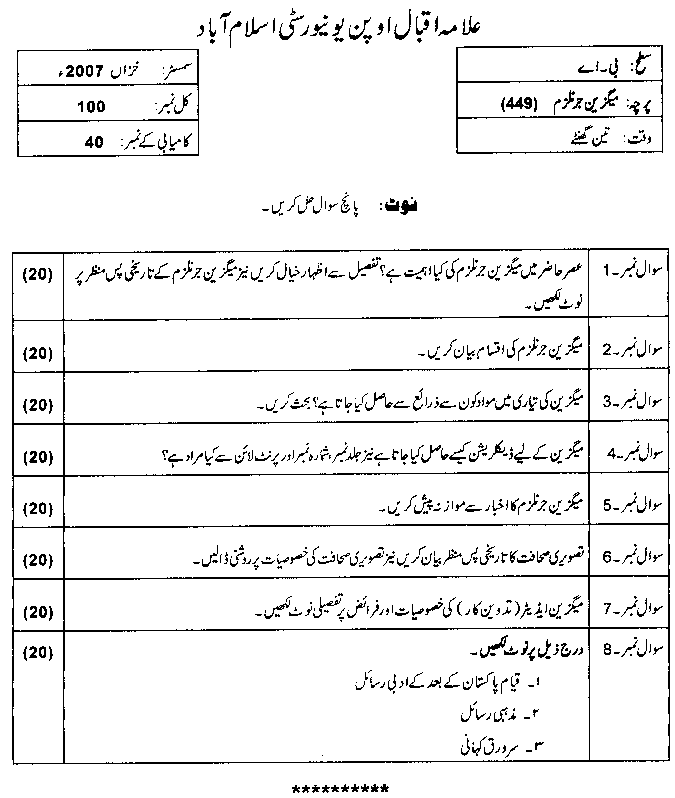 علامہ اقبال اوپن یونیورسٹی اسلام آباد
سطح: بی۔اے
پرچہ: میگزین جرنلزم (449)
وقت: تین گھنٹے
سمسٹر: خزاں 2007ء
کل نمبر: 100
کامیابی کے نمبر: 40
نوٹ: پانچ سوال حل کریں۔
سوال نمبر۔1 عصر حاضر میں میگزین جرنلزم کی کیا اہمیت ہے؟ تفصیل سے اظہار خیال کریں نیز میگزین جرنلزم کے تاریخی پس منظر پر (20)
نوٹ لکھیں۔
سوال نمبر۔2 میگزین جرنلزم کی اقسام بیان کریں۔ (20)
سوال نمبر۔3 میگزین کی تیاری میں مواد کون سے ذرائع سے حاصل کیا جاتا ہے؟ بحث کریں۔ (20)
سوال نمبر۔4 میگزین کے لیے ڈیکلریشن کیسے حاصل کیا جاتا ہے نیز جلد نمبر، شمارہ نمبر اور پرنٹ لائن سے کیا مراد ہے؟ (20)
سوال نمبر۔5 میگزین جرنلزم کا اخبار سے موازنہ پیش کریں۔ (20)
سوال نمبر۔6 تصویری صحافت کا تاریخی پس منظر بیان کریں نیز تصویری صحافت کی خصوصیات پر روشنی ڈالیں۔ (20)
سوال نمبر۔7 میگزین ایڈیٹر (تدوین کار) کی خصوصیات اور فرائض پر تفصیلی نوٹ لکھیں۔ (20)
سوال نمبر۔8 درج ذیل پر نوٹ لکھیں۔ (20)
۱۔ قیام پاکستان کے بعد کے ادبی رسائل
۲۔ مذہبی رسائل
۳۔ سرورق کہانی
**********